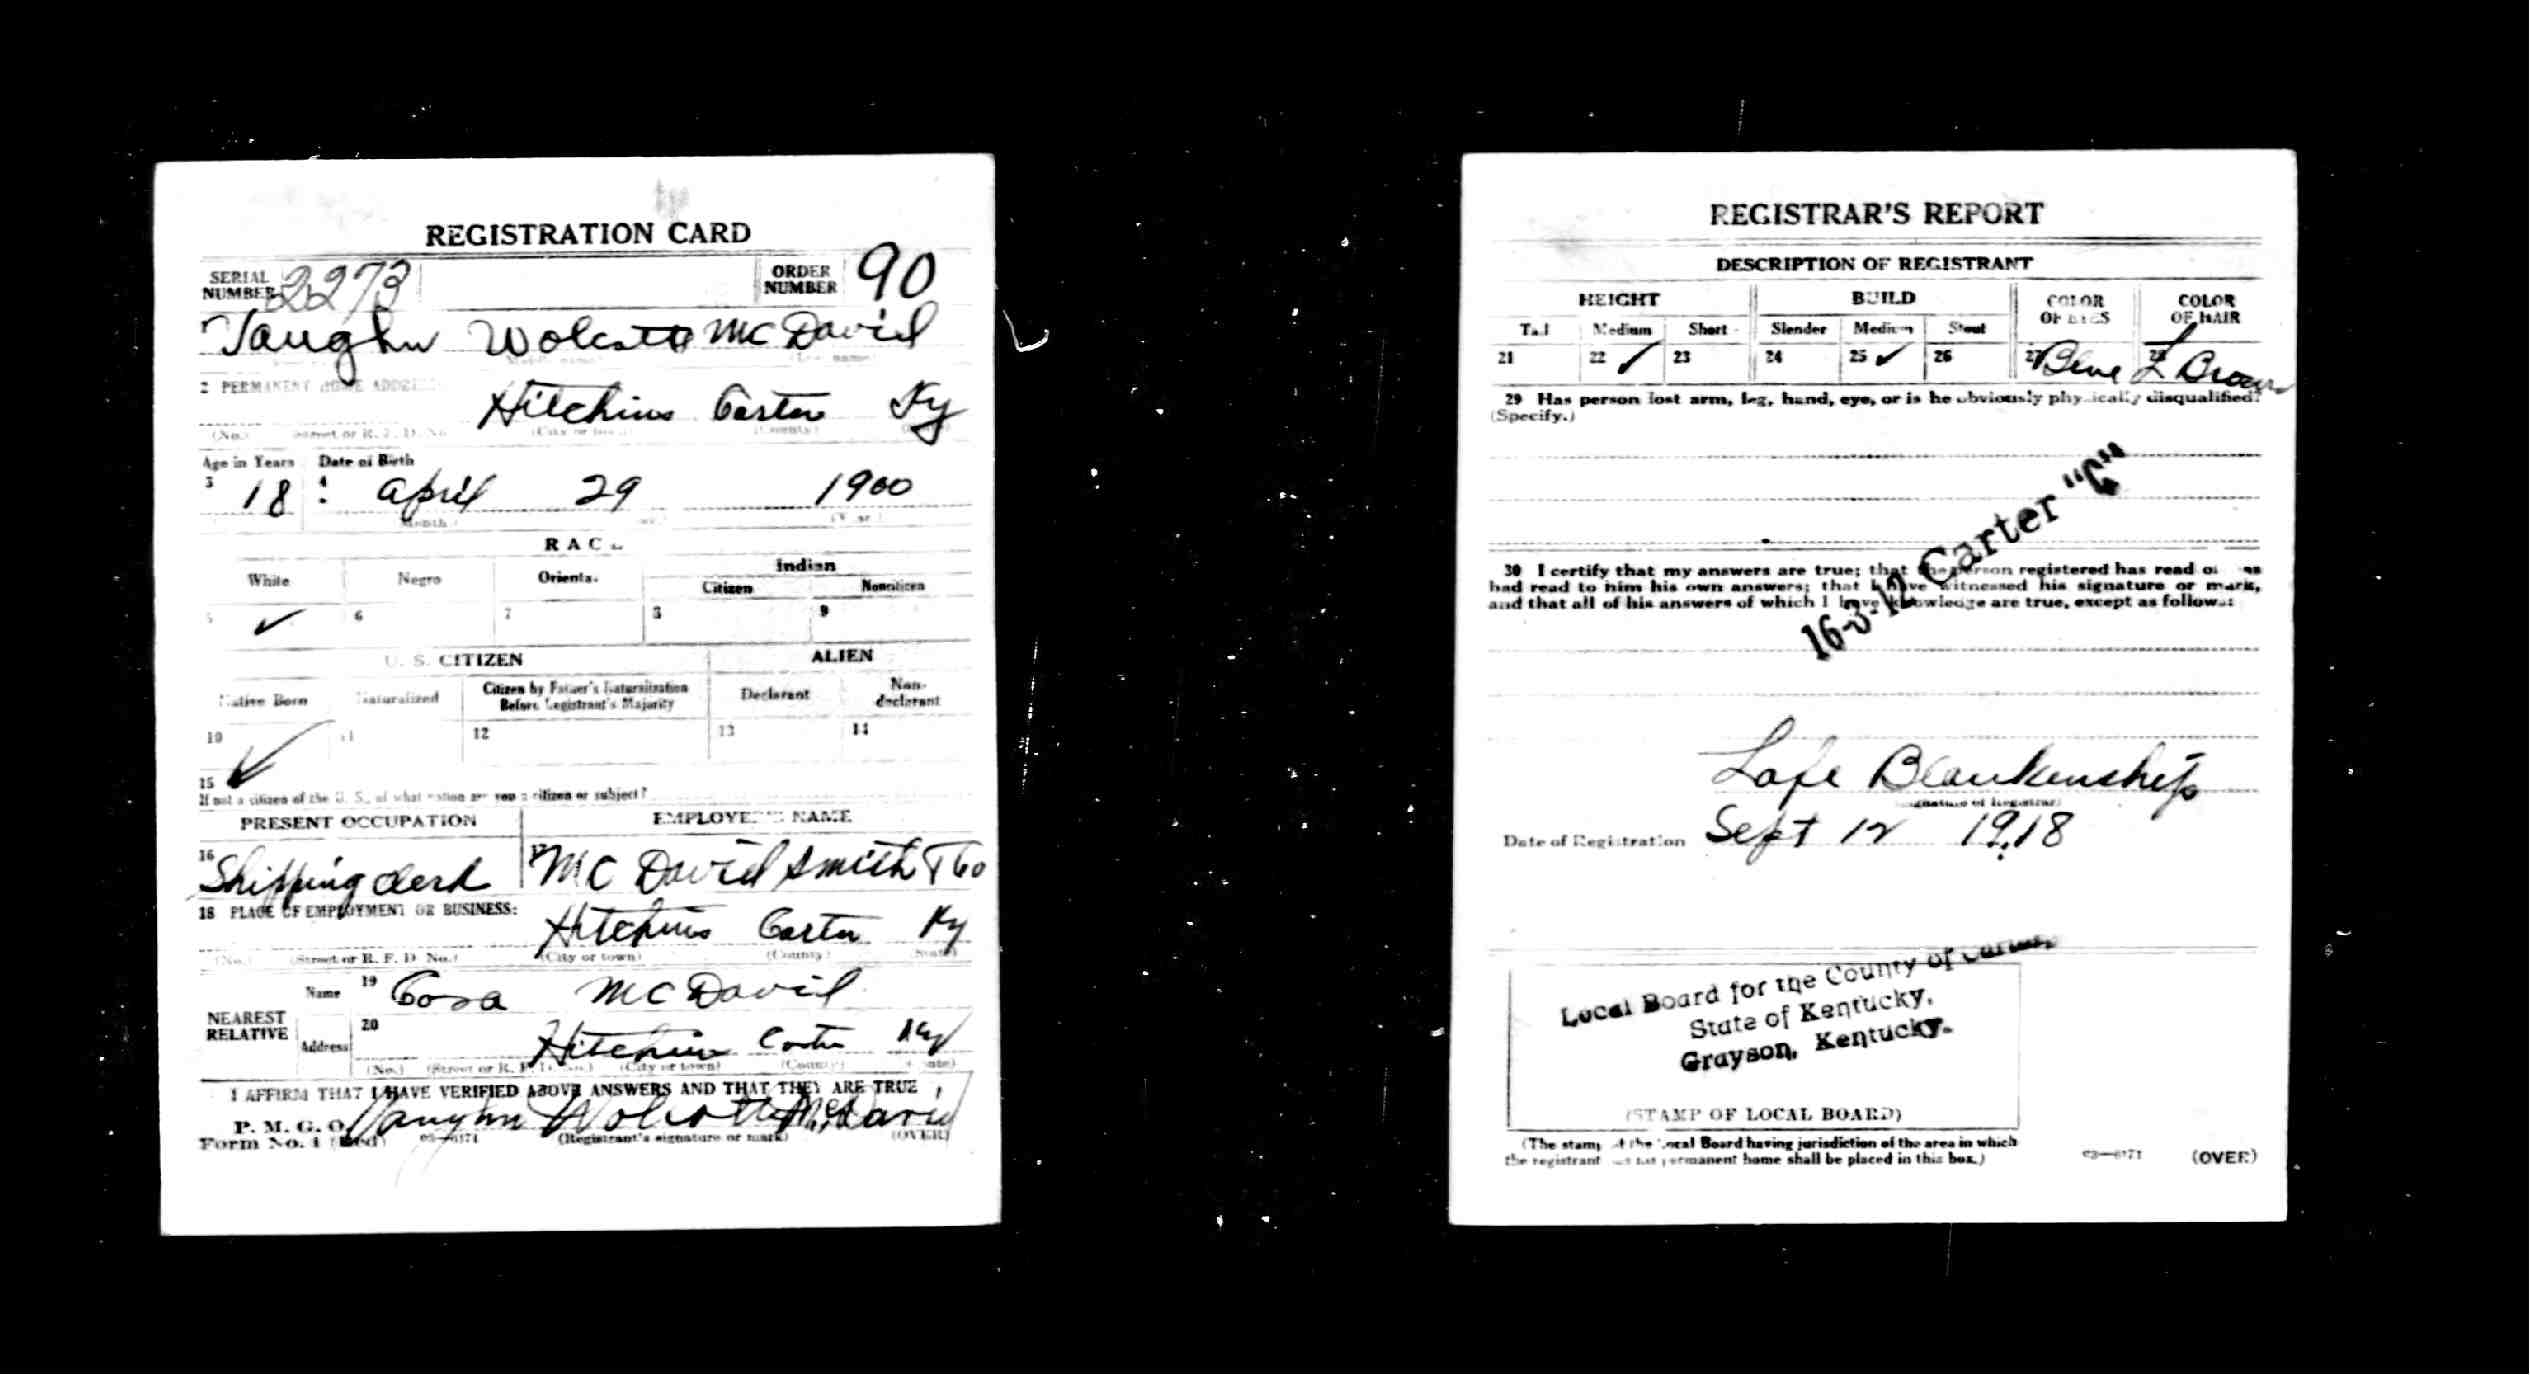 REGISTRATION CARD
SERIAL NUMBER 2273 ORDER NUMBER 90
Vaughn Wolcott McDavid
2 PERMANENT HOME ADDRESS
Hitchins Carter Ky
(No.) Street or R. F. D. No. (City or town) (County)
Age in Years Date of Birth
3 18 4 April 29 1900
(Month) (Year)
RACE
White Negro Oriental Indian
Citizen Noncitizen
5 ✓ 6 7 8 9
U. S. CITIZEN ALIEN
Native Born Naturalized Citizen by Father's Naturalization Before Registrant's Majority Declarant Non-declarant
10 ✓ 11 12 13 14
15
If not a citizen of the U. S., of what nation are you a citizen or subject?
PRESENT OCCUPATION EMPLOYER'S NAME
16 Shipping Clerk 17 McDavid Smith & Co
18 PLACE OF EMPLOYMENT OR BUSINESS:
Hitchins Carter Ky
(No.) (Street or R. F. D. No.) (City or town) (County) (State)
NEAREST RELATIVE Name 19 Cora McDavid
Address 20 Hitchins Carter Ky
(No.) (Street or R. F. D. No.) (City or town) (County) (State)
I AFFIRM THAT I HAVE VERIFIED ABOVE ANSWERS AND THAT THEY ARE TRUE
P. M. G. O. Vaughn Wolcott McDavid
Form No. 1 (Red) 03—6171 (Registrant's signature or mark) (OVER)
REGISTRAR'S REPORT
DESCRIPTION OF REGISTRANT
HEIGHT BUILD COLOR OF EYES COLOR OF HAIR
Tall Medium Short Slender Medium Stout
21 22 ✓ 23 24 25 ✓ 26 27 Blue 28 L Brown
29 Has person lost arm, leg, hand, eye, or is he obviously physically disqualified?
(Specify.)
16-3-12 Carter "C"
30 I certify that my answers are true; that the person registered has read or has
had read to him his own answers; that I have witnessed his signature or mark,
and that all of his answers of which I have knowledge are true, except as follows:
Lafe Blankenship
(Signature of Registrar)
Date of Registration Sept 12 1918
Local Board for the County of Carter,
State of Kentucky,
Grayson, Kentucky.
(STAMP OF LOCAL BOARD)
(The stamp of the Local Board having jurisdiction of the area in which
the registrant has his permanent home shall be placed in this box.)
03—6171 (OVER)